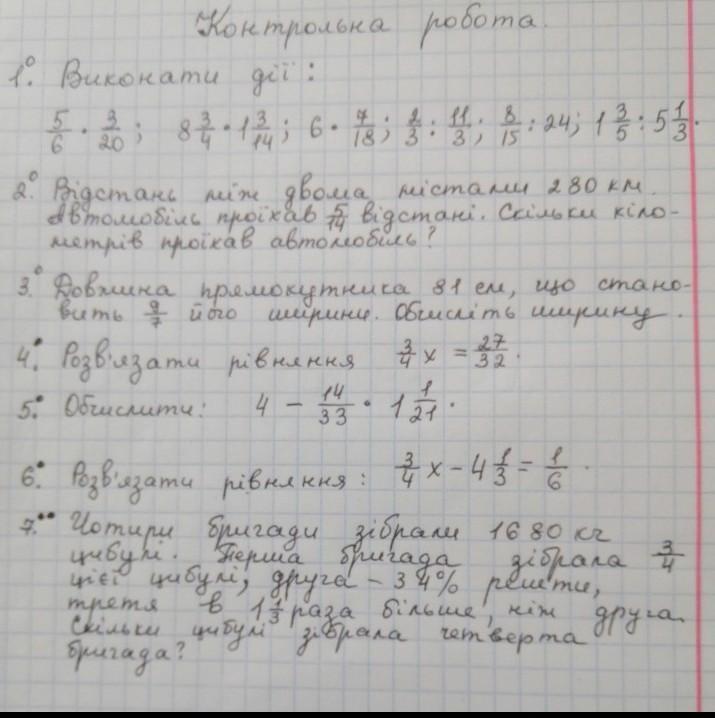 Контрольна робота.
1.° Виконати дії:
5/6 · 3/20; 8 3/4 · 1 3/14; 6 · 7/18; 2/3 : 11/3; 8/15 : 24; 1 3/5 : 5 1/3.
2.° Відстань між двома містами 280 км.
Автомобіль проїхав 5/14 відстані. Скільки кіло-
метрів проїхав автомобіль?
3.° Довжина прямокутника 81 см, що стано-
вить 9/7 його ширини. Обчисліть ширину.
4.• Розв'язати рівняння 3/4 x = 27/32.
5.• Обчислити: 4 - 14/33 · 1 1/21.
6.• Розв'язати рівняння: 3/4 x - 4 1/3 = 1/6.
7.•• Чотири бригади зібрали 1680 кг
цибулі. Перша бригада зібрала 3/4
цієї цибулі, друга - 34% решти,
третя в 1 1/3 раза більше, ніж друга.
Скільки цибулі зібрала четверта
бригада?